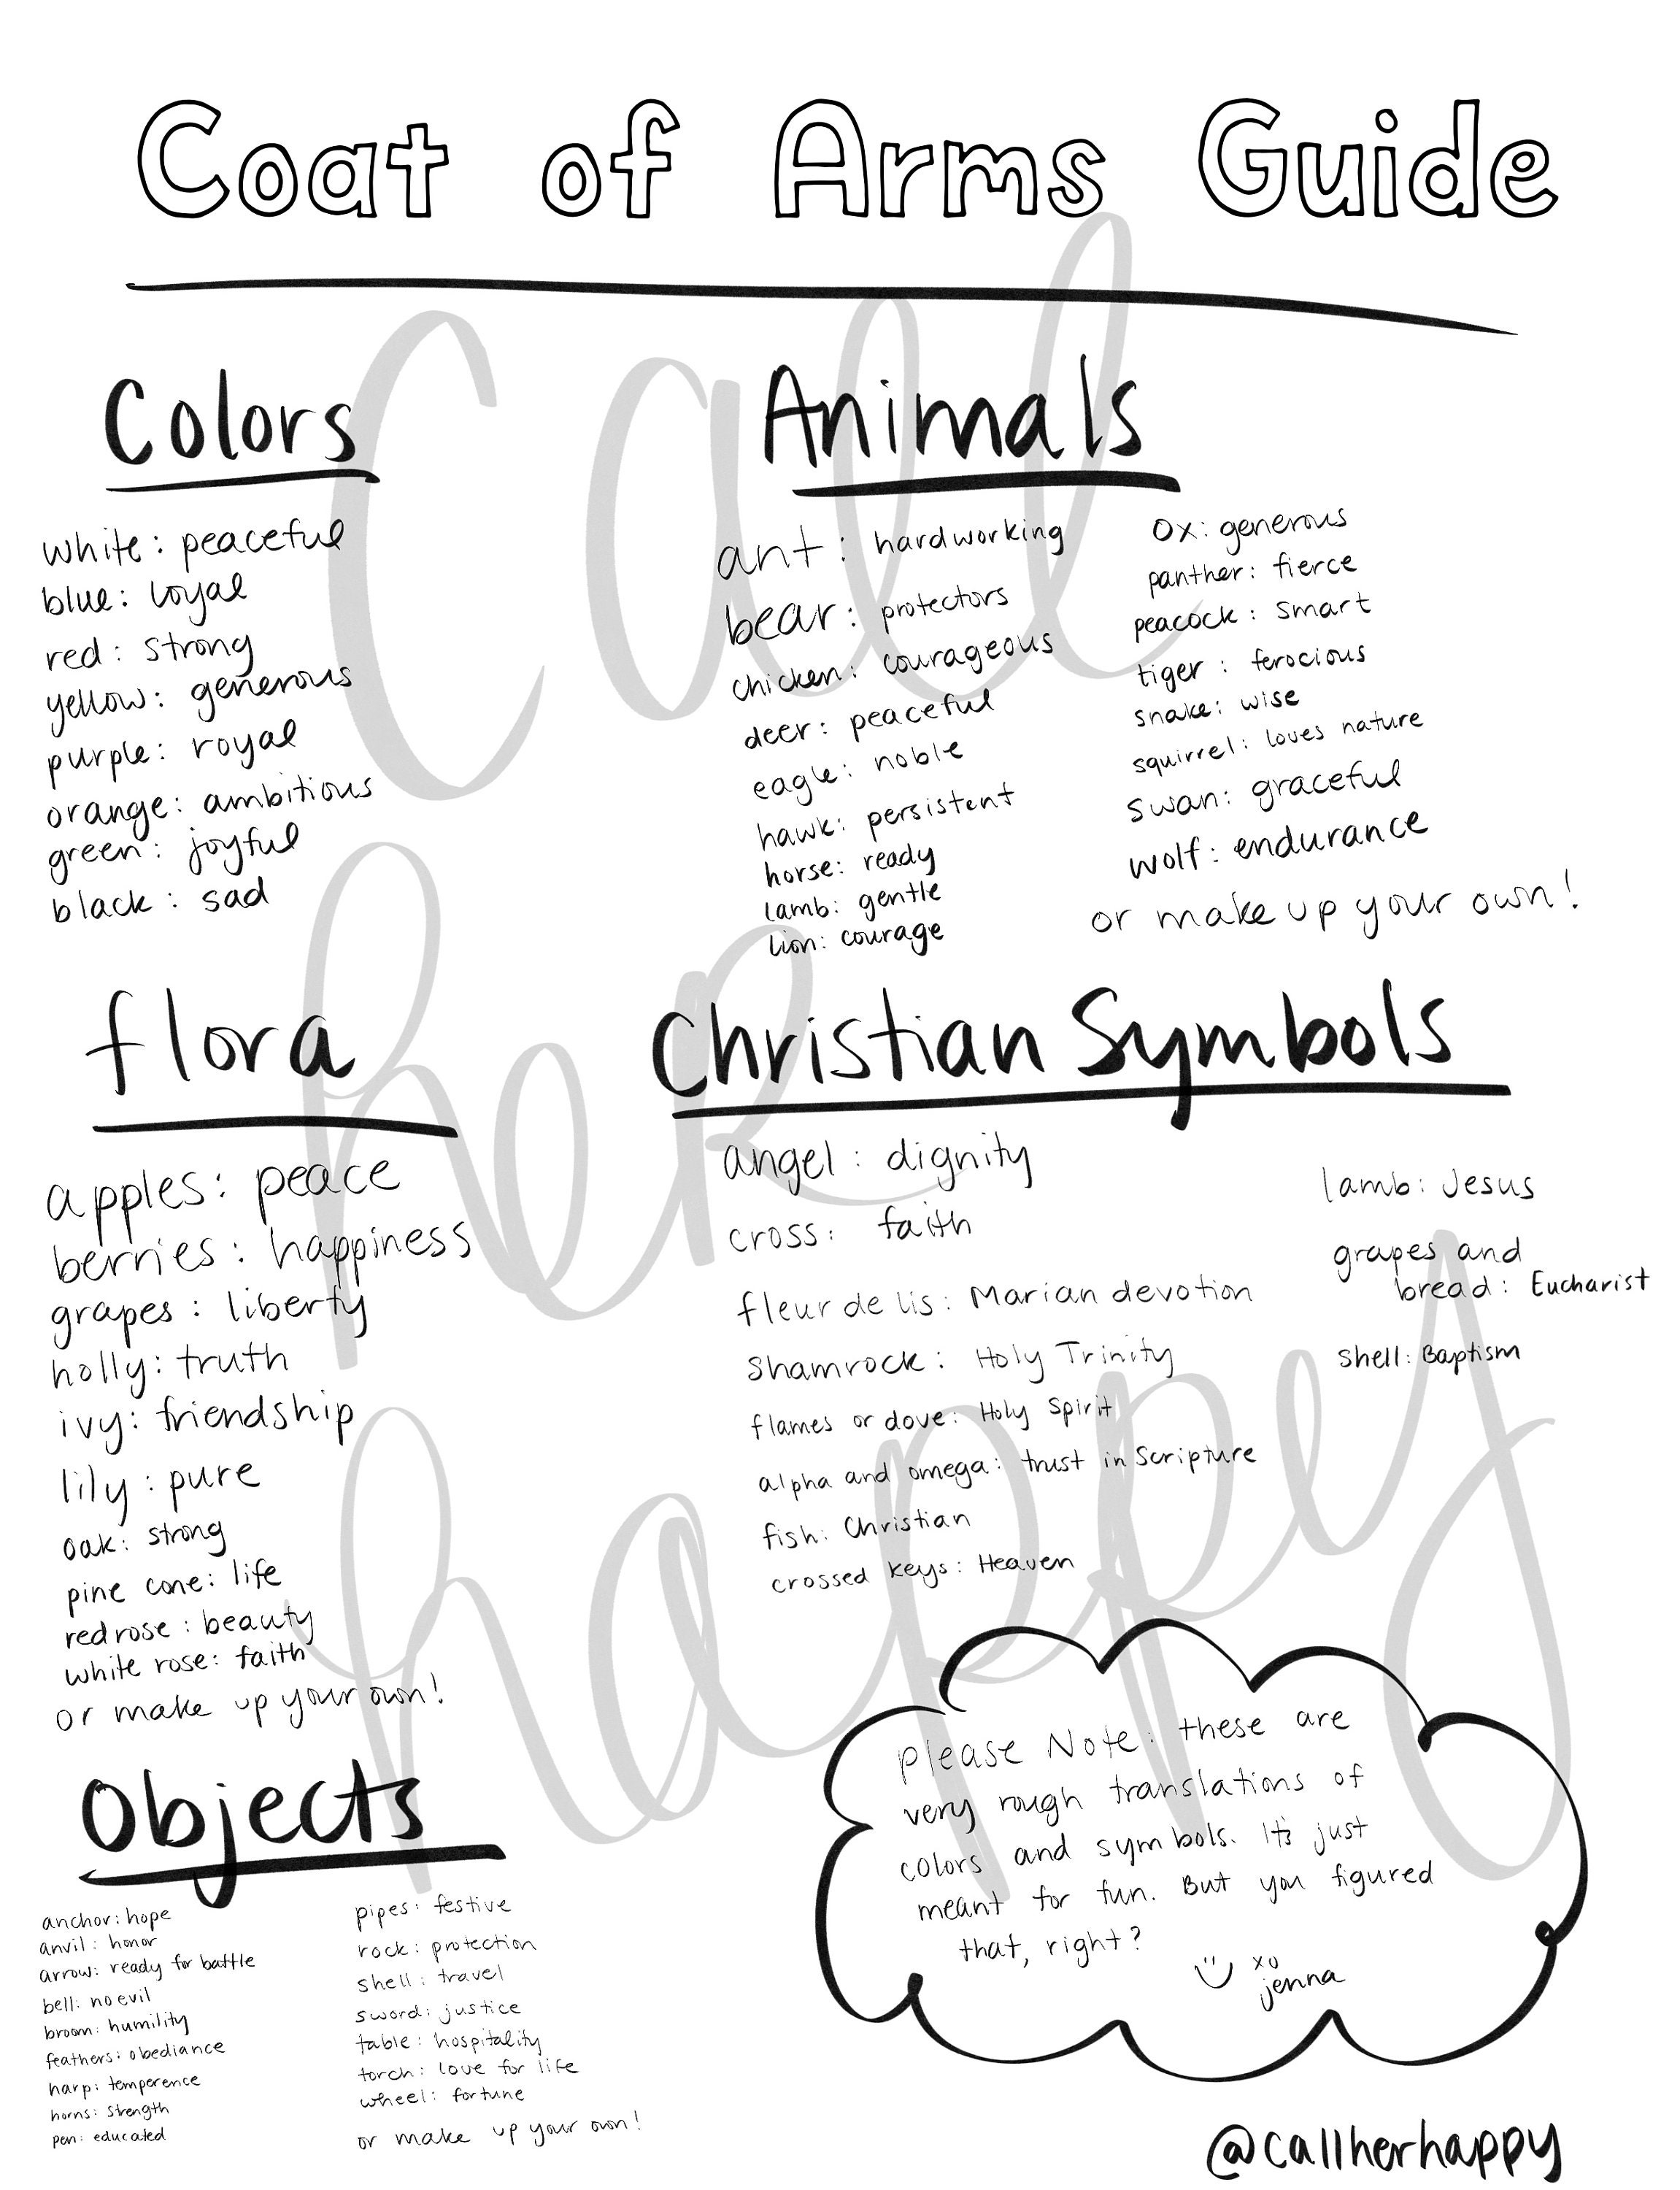 Coat of Arms Guide
Colors
white: peaceful
blue: loyal
red: strong
yellow: generous
purple: royal
orange: ambitious
green: joyful
black: sad
Animals
ant: hardworking
bear: protectors
chicken: courageous
deer: peaceful
eagle: noble
hawk: persistent
horse: ready
lamb: gentle
lion: courage
ox: generous
panther: fierce
peacock: smart
tiger: ferocious
snake: wise
squirrel: loves nature
swan: graceful
wolf: endurance
or make up your own!
flora
apples: peace
berries: happiness
grapes: liberty
holly: truth
ivy: friendship
lily: pure
oak: strong
pine cone: life
red rose: beauty
white rose: faith
or make up your own!
Christian Symbols
angel: dignity
cross: faith
fleur de lis: Marian devotion
shamrock: Holy Trinity
flames or dove: Holy Spirit
alpha and omega: trust in Scripture
fish: Christian
crossed keys: Heaven
lamb: Jesus
grapes and
bread: Eucharist
shell: Baptism
Objects
anchor: hope
anvil: honor
arrow: ready for battle
bell: no evil
broom: humility
feathers: obediance
harp: temperence
horns: strength
pen: educated
pipes: festive
rock: protection
shell: travel
sword: justice
table: hospitality
torch: love for life
wheel: fortune
or make up your own!
Please Note: these are
very rough translations of
colors and symbols. It's just
meant for fun. But you figured
that, right?
xo
jenna
@callherhappy
Call
her
happy